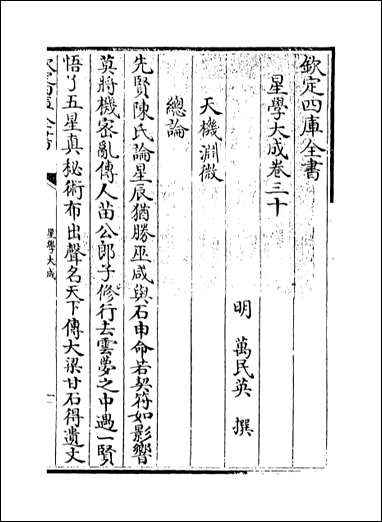 欽定四庫全書
星學大成卷三十
明 萬民英 撰
天機淵微
總論
先賢陳氏論星辰猶勝巫咸與石申命若契符如影響
莫將機密亂傳人苗公郎子修行去雲夢之中遇一賢
悟了五星真秘術布出聲名天下傳大梁甘石得遺文
星學大成